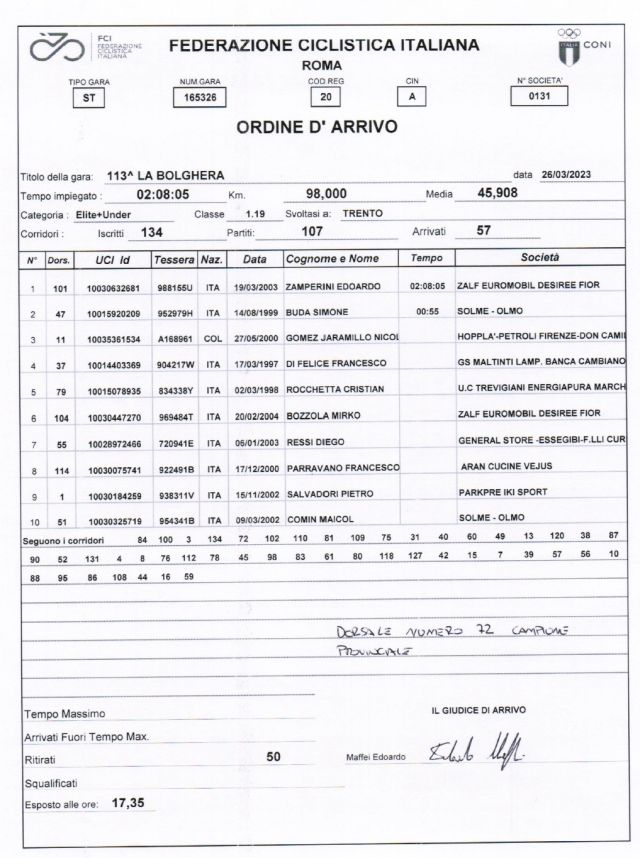 FCI
FEDERAZIONE
CICLISTICA
ITALIANA
FEDERAZIONE CICLISTICA ITALIANA
ROMA
ITALIA CONI
TIPO GARA NUM.GARA COD REG CIN N° SOCIETA'
ST 165326 20 A 0131
ORDINE D' ARRIVO
Titolo della gara: 113^ LA BOLGHERA data 26/03/2023
Tempo impiegato : 02:08:05 Km. 98,000 Media 45,908
Categoria : Elite+Under Classe 1.19 Svoltasi a: TRENTO
Corridori : Iscritti 134 Partiti: 107 Arrivati 57
N° Dors. UCI Id Tessera Naz. Data Cognome e Nome Tempo Società
1 101 10030632681 988155U ITA 19/03/2003 ZAMPERINI EDOARDO 02:08:05 ZALF EUROMOBIL DESIREE FIOR
2 47 10015920209 952979H ITA 14/08/1999 BUDA SIMONE 00:55 SOLME - OLMO
3 11 10035361534 A168961 COL 27/05/2000 GOMEZ JARAMILLO NICOL HOPPLA'-PETROLI FIRENZE-DON CAMIL
4 37 10014403369 904217W ITA 17/03/1997 DI FELICE FRANCESCO GS MALTINTI LAMP. BANCA CAMBIANO
5 79 10015078935 834338Y ITA 02/03/1998 ROCCHETTA CRISTIAN U.C TREVIGIANI ENERGIAPURA MARCH
6 104 10030447270 969484T ITA 20/02/2004 BOZZOLA MIRKO ZALF EUROMOBIL DESIREE FIOR
7 55 10028972466 720941E ITA 06/01/2003 RESSI DIEGO GENERAL STORE -ESSEGIBI-F.LLI CUR
8 114 10030075741 922491B ITA 17/12/2000 PARRAVANO FRANCESCO ARAN CUCINE VEJUS
9 1 10030184259 938311V ITA 15/11/2002 SALVADORI PIETRO PARKPRE IKI SPORT
10 51 10030325719 954341B ITA 09/03/2002 COMIN MAICOL SOLME - OLMO
Seguono i corridori 84 100 3 134 72 102 110 81 109 75 31 40 60 49 13 120 38 87
90 52 131 4 8 76 112 78 45 98 83 61 80 118 127 42 15 7 39 57 56 10
88 95 86 108 44 16 59
DORSALE NUMERO 72 CAMPIONE
PROVINCIALE
Tempo Massimo
IL GIUDICE DI ARRIVO
Arrivati Fuori Tempo Max.
Ritirati 50 Maffei Edoardo
Squalificati
Esposto alle ore: 17,35